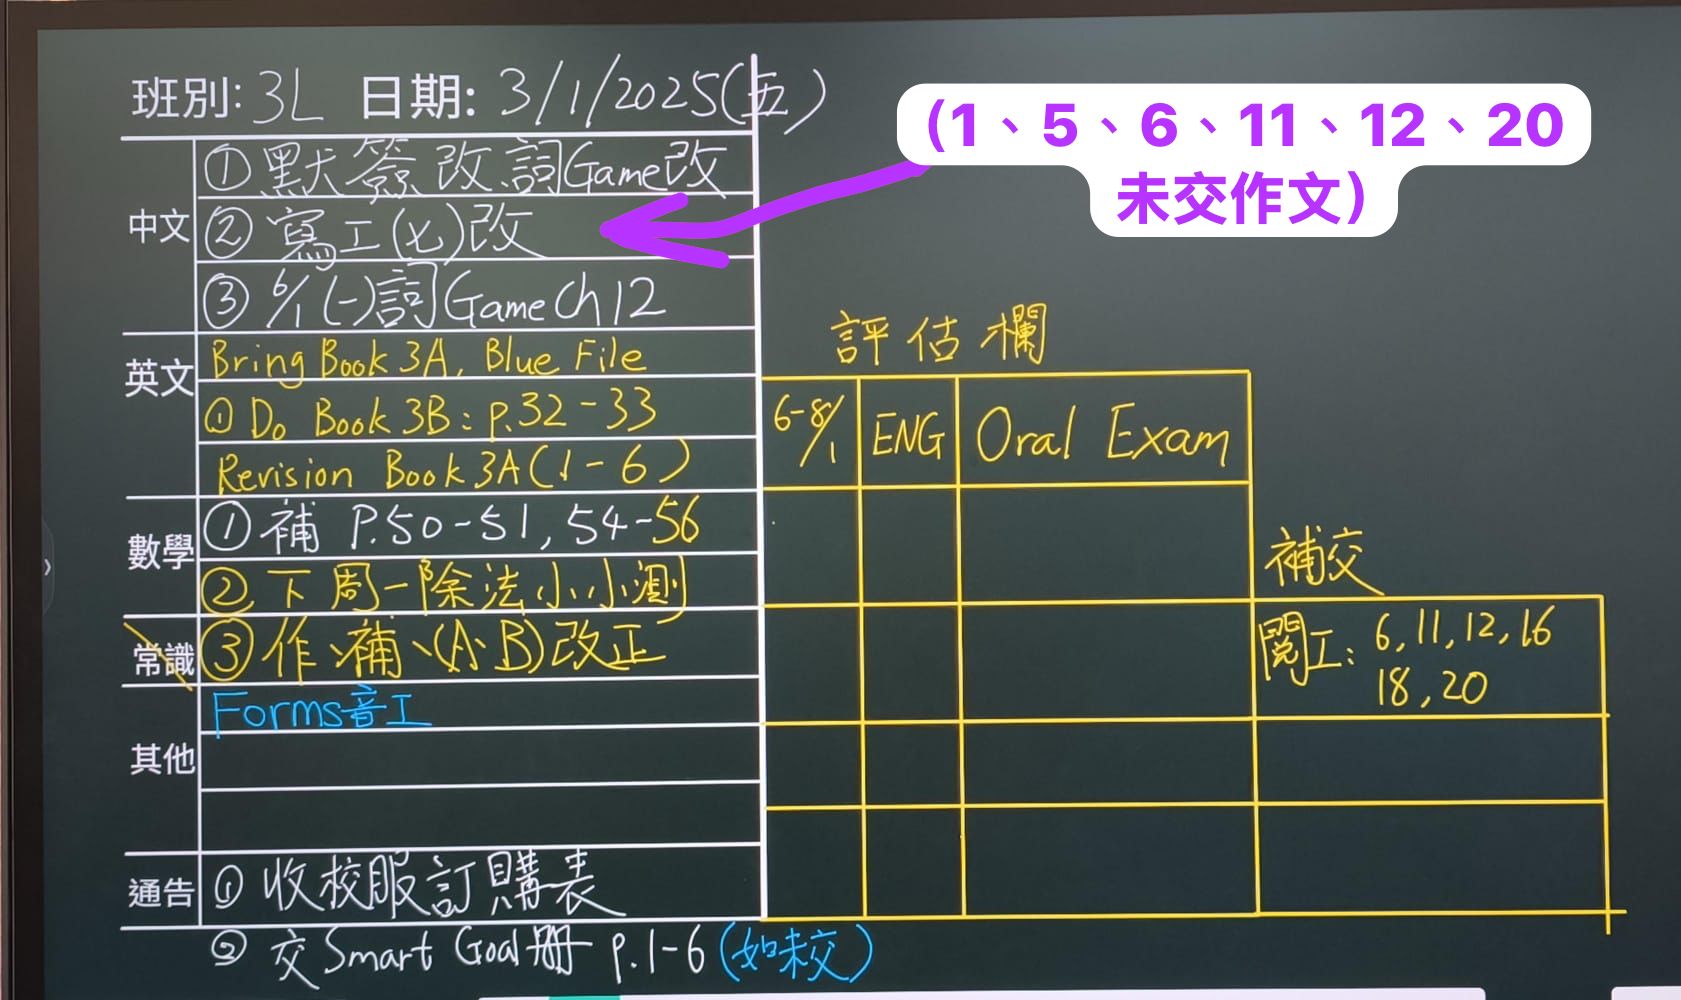 班別: 3L 日期: 3/1/2025(五)
(1、5、6、11、12、20
未交作文)
中文
① 默簽改詞Game改
② 寫工(七)改
③ 6/1 (一)詞Game Ch12
英文
Bring Book 3A, Blue File
① Do Book 3B: p.32-33
Revision Book 3A (1-6)
數學
① 補 P.50-51, 54-56
② 下周一除法小小測
常識
③ 作、補、(A、B)改正
其他
Forms音工
通告
① 收校服訂購表
② 交 Smart Goal冊 p.1-6 (如未交)
評估欄
6-8/1 ENG Oral Exam
補交
閱工: 6, 11, 12, 16
18, 20